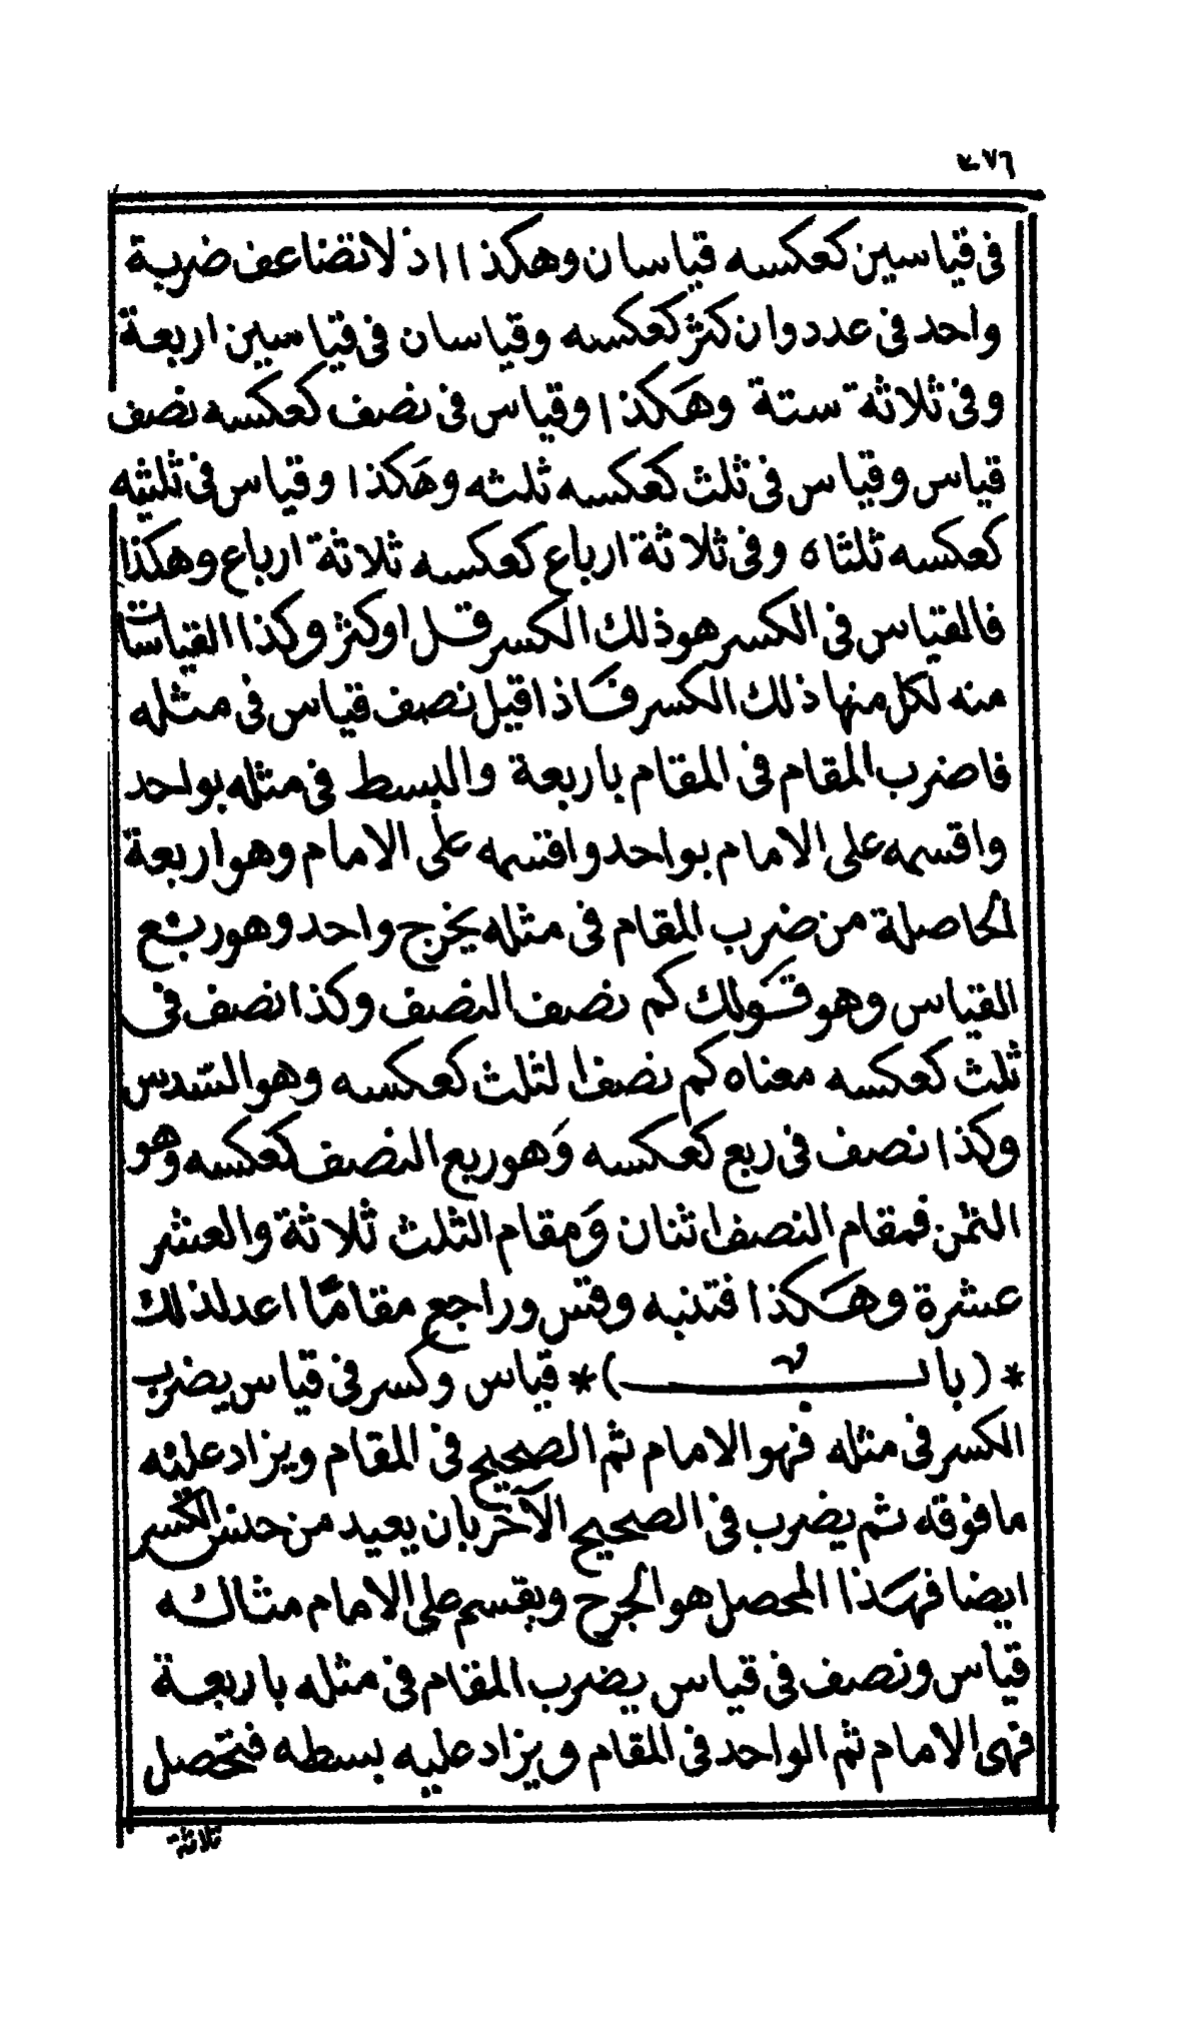 ٣٧٦
فى قياسين كعكسه قياسان وهكذا اذ لا تضاعف ضربة
واحد فى عدد وان كثر كعكسه وقياسان فى قياسين اربعة
وفى ثلاثة ستة وهكذا وقياس فى نصف كعكسه نصف
قياس وقياس فى ثلث كعكسه ثلثه وهكذا وقياس فى ثلثيه
كعكسه ثلثاه وفى ثلاثة ارباع كعكسه ثلاثة ارباع وهكذا
فالقياس فى الكسر هو ذلك الكسر قل او كثر وكذا القياسات
منه لكل منها ذلك الكسر فاذا قيل نصف قياس فى مثله
فاضرب المقام فى المقام باربعة والبسط فى مثله بواحد
واقسمه على الامام بواحد واقسمه على الامام وهو اربعة
الحاصلة من ضرب المقام فى مثله يخرج واحد وهو ربع
القياس وهو قولك كم نصف النصف وكذا نصف فى
ثلث كعكسه معناه كم نصف الثلث كعكسه وهو السدس
وكذا نصف فى ربع كعكسه وهو ربع النصف كعكسه وهو
الثمن فمقام النصف اثنان ومقام الثلث ثلاثة والعشر
عشرة وهكذا فتنبه وقس وراجع مقاما اعد لذلك
*(باب)* قياس وكسر فى قياس يضرب
الكسر فى مثله فهو الامام ثم الصحيح فى المقام ويزاد عليه
ما فوقه ثم يضرب فى الصحيح الآخر بان يعيد من جنس الكسر
ايضا فهذا المحصل هو الجرح ويقسم على الامام مثاله
قياس ونصف فى قياس يضرب المقام فى مثله باربعة
فهى الامام ثم الواحد فى المقام ويزاد عليه بسطه فتحصل
ثلاثة